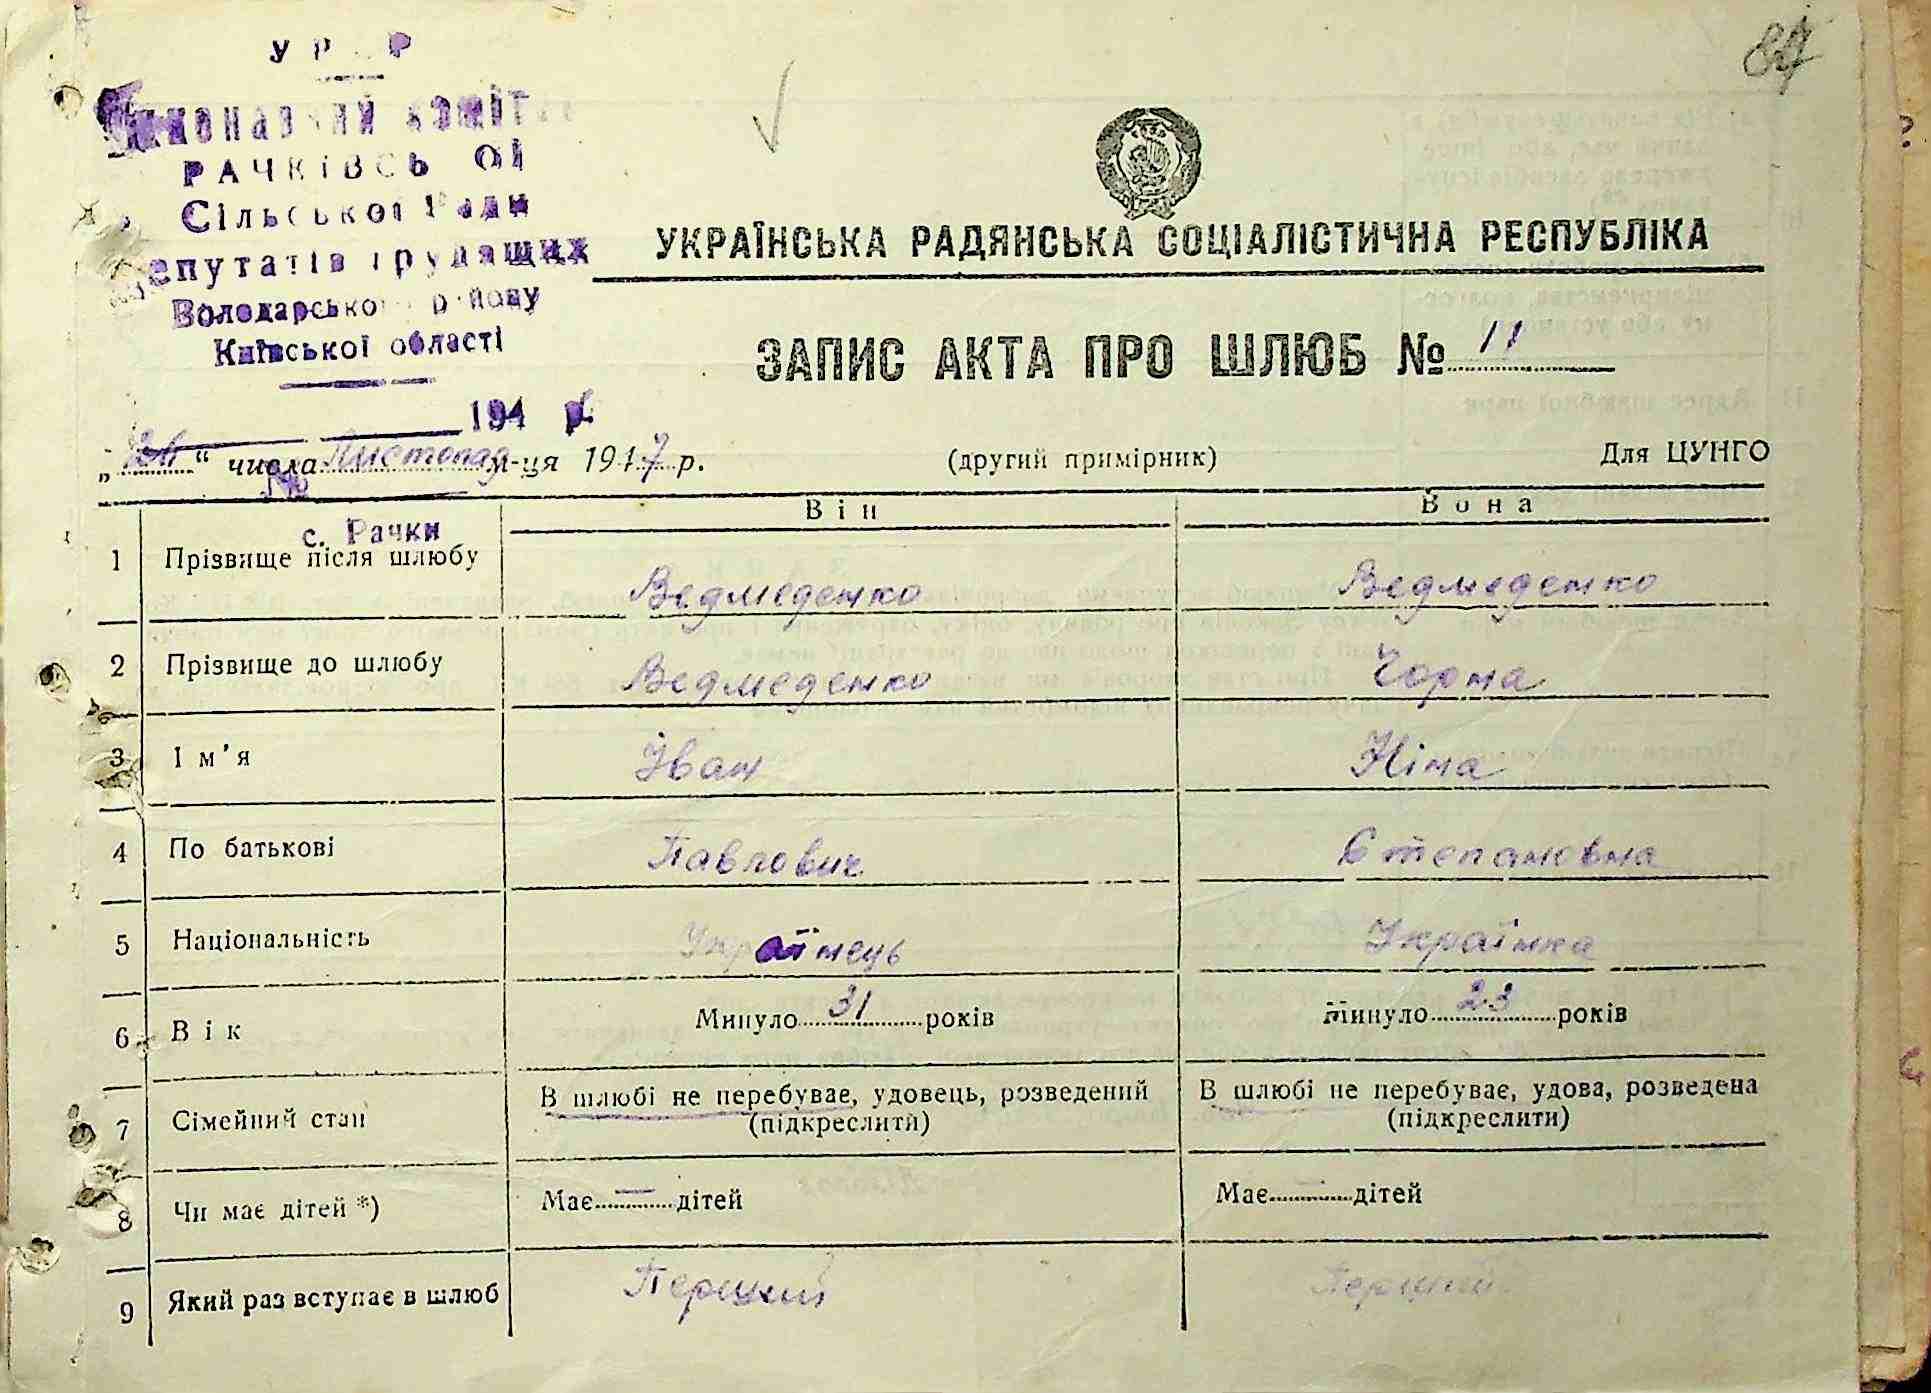 84
УРСР
Виконавчий комітет
РАЧКІВСЬКОЇ
Сільської Ради
депутатів трудящих
Володарського району
Київської області
194 р.
№
с. Рачки
УКРАЇНСЬКА РАДЯНСЬКА СОЦІАЛІСТИЧНА РЕСПУБЛІКА
ЗАПИС АКТА ПРО ШЛЮБ № 11
„ “ числа Листопад м-ця 1947 р. (другий примірник) Для ЦУНГО
Він Вона
1 Прізвище після шлюбу Ведмеденко Ведмеденко
2 Прізвище до шлюбу Ведмеденко Чорна
3 Ім'я Іван Ніна
4 По батькові Павлович Степановна
5 Національність Українець Українка
6 Вік Минуло 31 років Минуло 23 років
7 Сімейний стан В шлюбі не перебуває, удовець, розведений В шлюбі не перебуває, удова, розведена
(підкреслити) (підкреслити)
8 Чи має дітей *) Має — дітей Має — дітей
9 Який раз вступає в шлюб Перший Перший